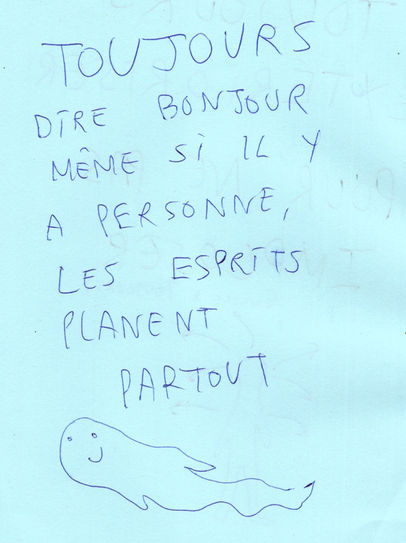 TOUJOURS
DIRE BONJOUR
MÊME SI IL Y
A PERSONNE,
LES ESPRITS
PLANENT
PARTOUT